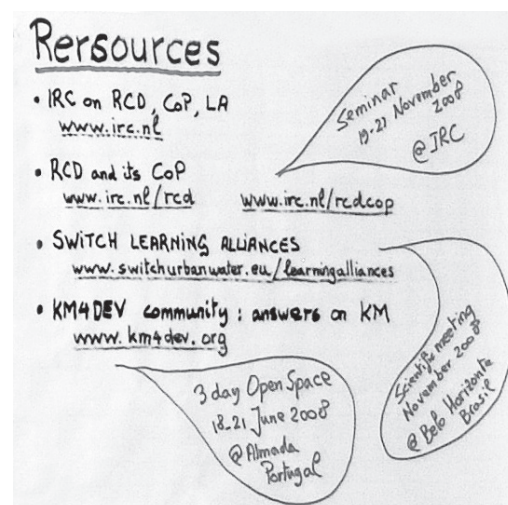 Rersources
• IRC on RCD, CoP, LA
www.irc.nl
Seminar
19-21 November
2008
@ IRC
• RCD and its CoP
www.irc.nl/rcd www.irc.nl/rcdcop
• SWITCH LEARNING ALLIANCES
www.switchurbanwater.eu/learningalliances
• KM4DEV community: answers on KM
www.km4dev.org
Scientific meeting
November 2008
@ Belo Horizonte
Brasil
3 day Open Space
18-21 June 2008
@ Almada
Portugal